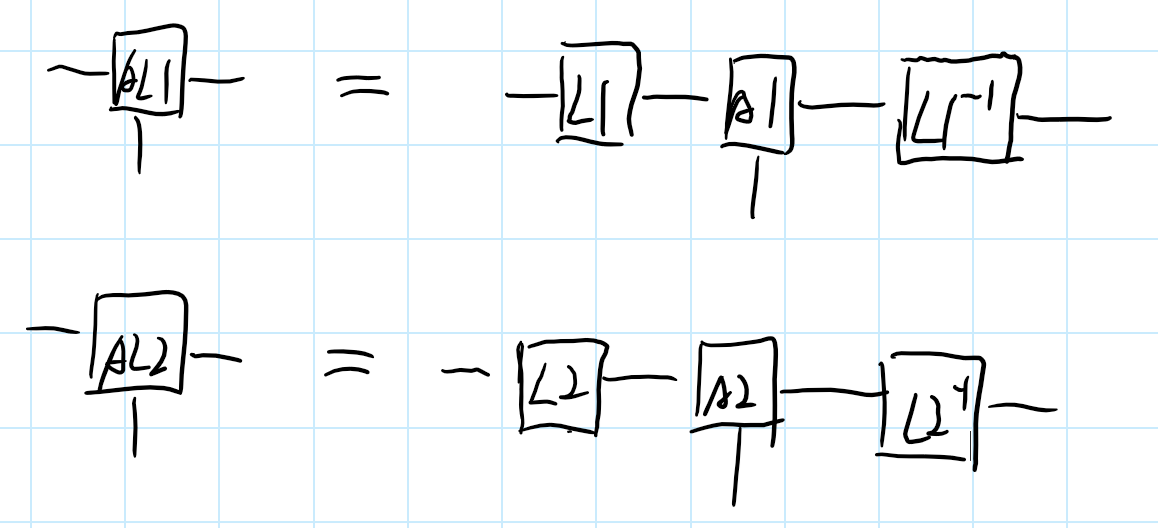 AL1 = L1 A1 L1⁻¹
AL2 = L2 A2 L2⁻¹